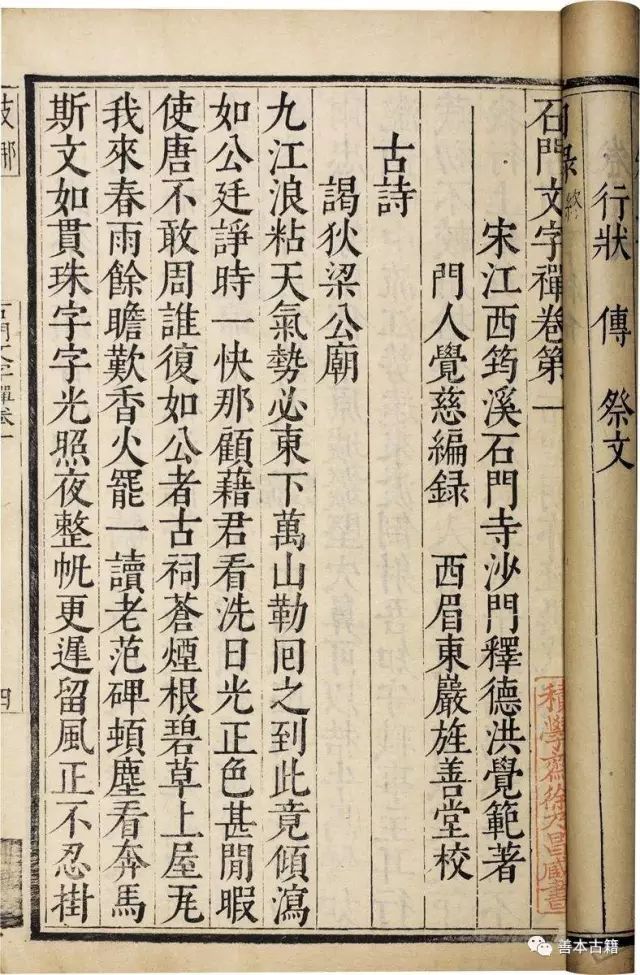 行狀 傳 祭文
目錄終
石門文字禪卷第一
宋江西筠溪石門寺沙門釋德洪覺範著
門人覺慈編録 西眉東巖旌善堂校
古詩
謁狄梁公廟
九江浪粘天氣勢必東下萬山勒囘之到此竟傾瀉
如公廷諍時一快那顧藉君看洗日光正色甚閒暇
使唐不敢周誰復如公者古祠蒼煙根碧草上屋瓦
我來春雨餘瞻歎香火罷一讀老范碑頓塵看奔馬
斯文如貫珠字字光照夜整帆更遲留風正不忍掛
石門文字禪卷一
四
積學齋徐乃昌藏書
善本古籍